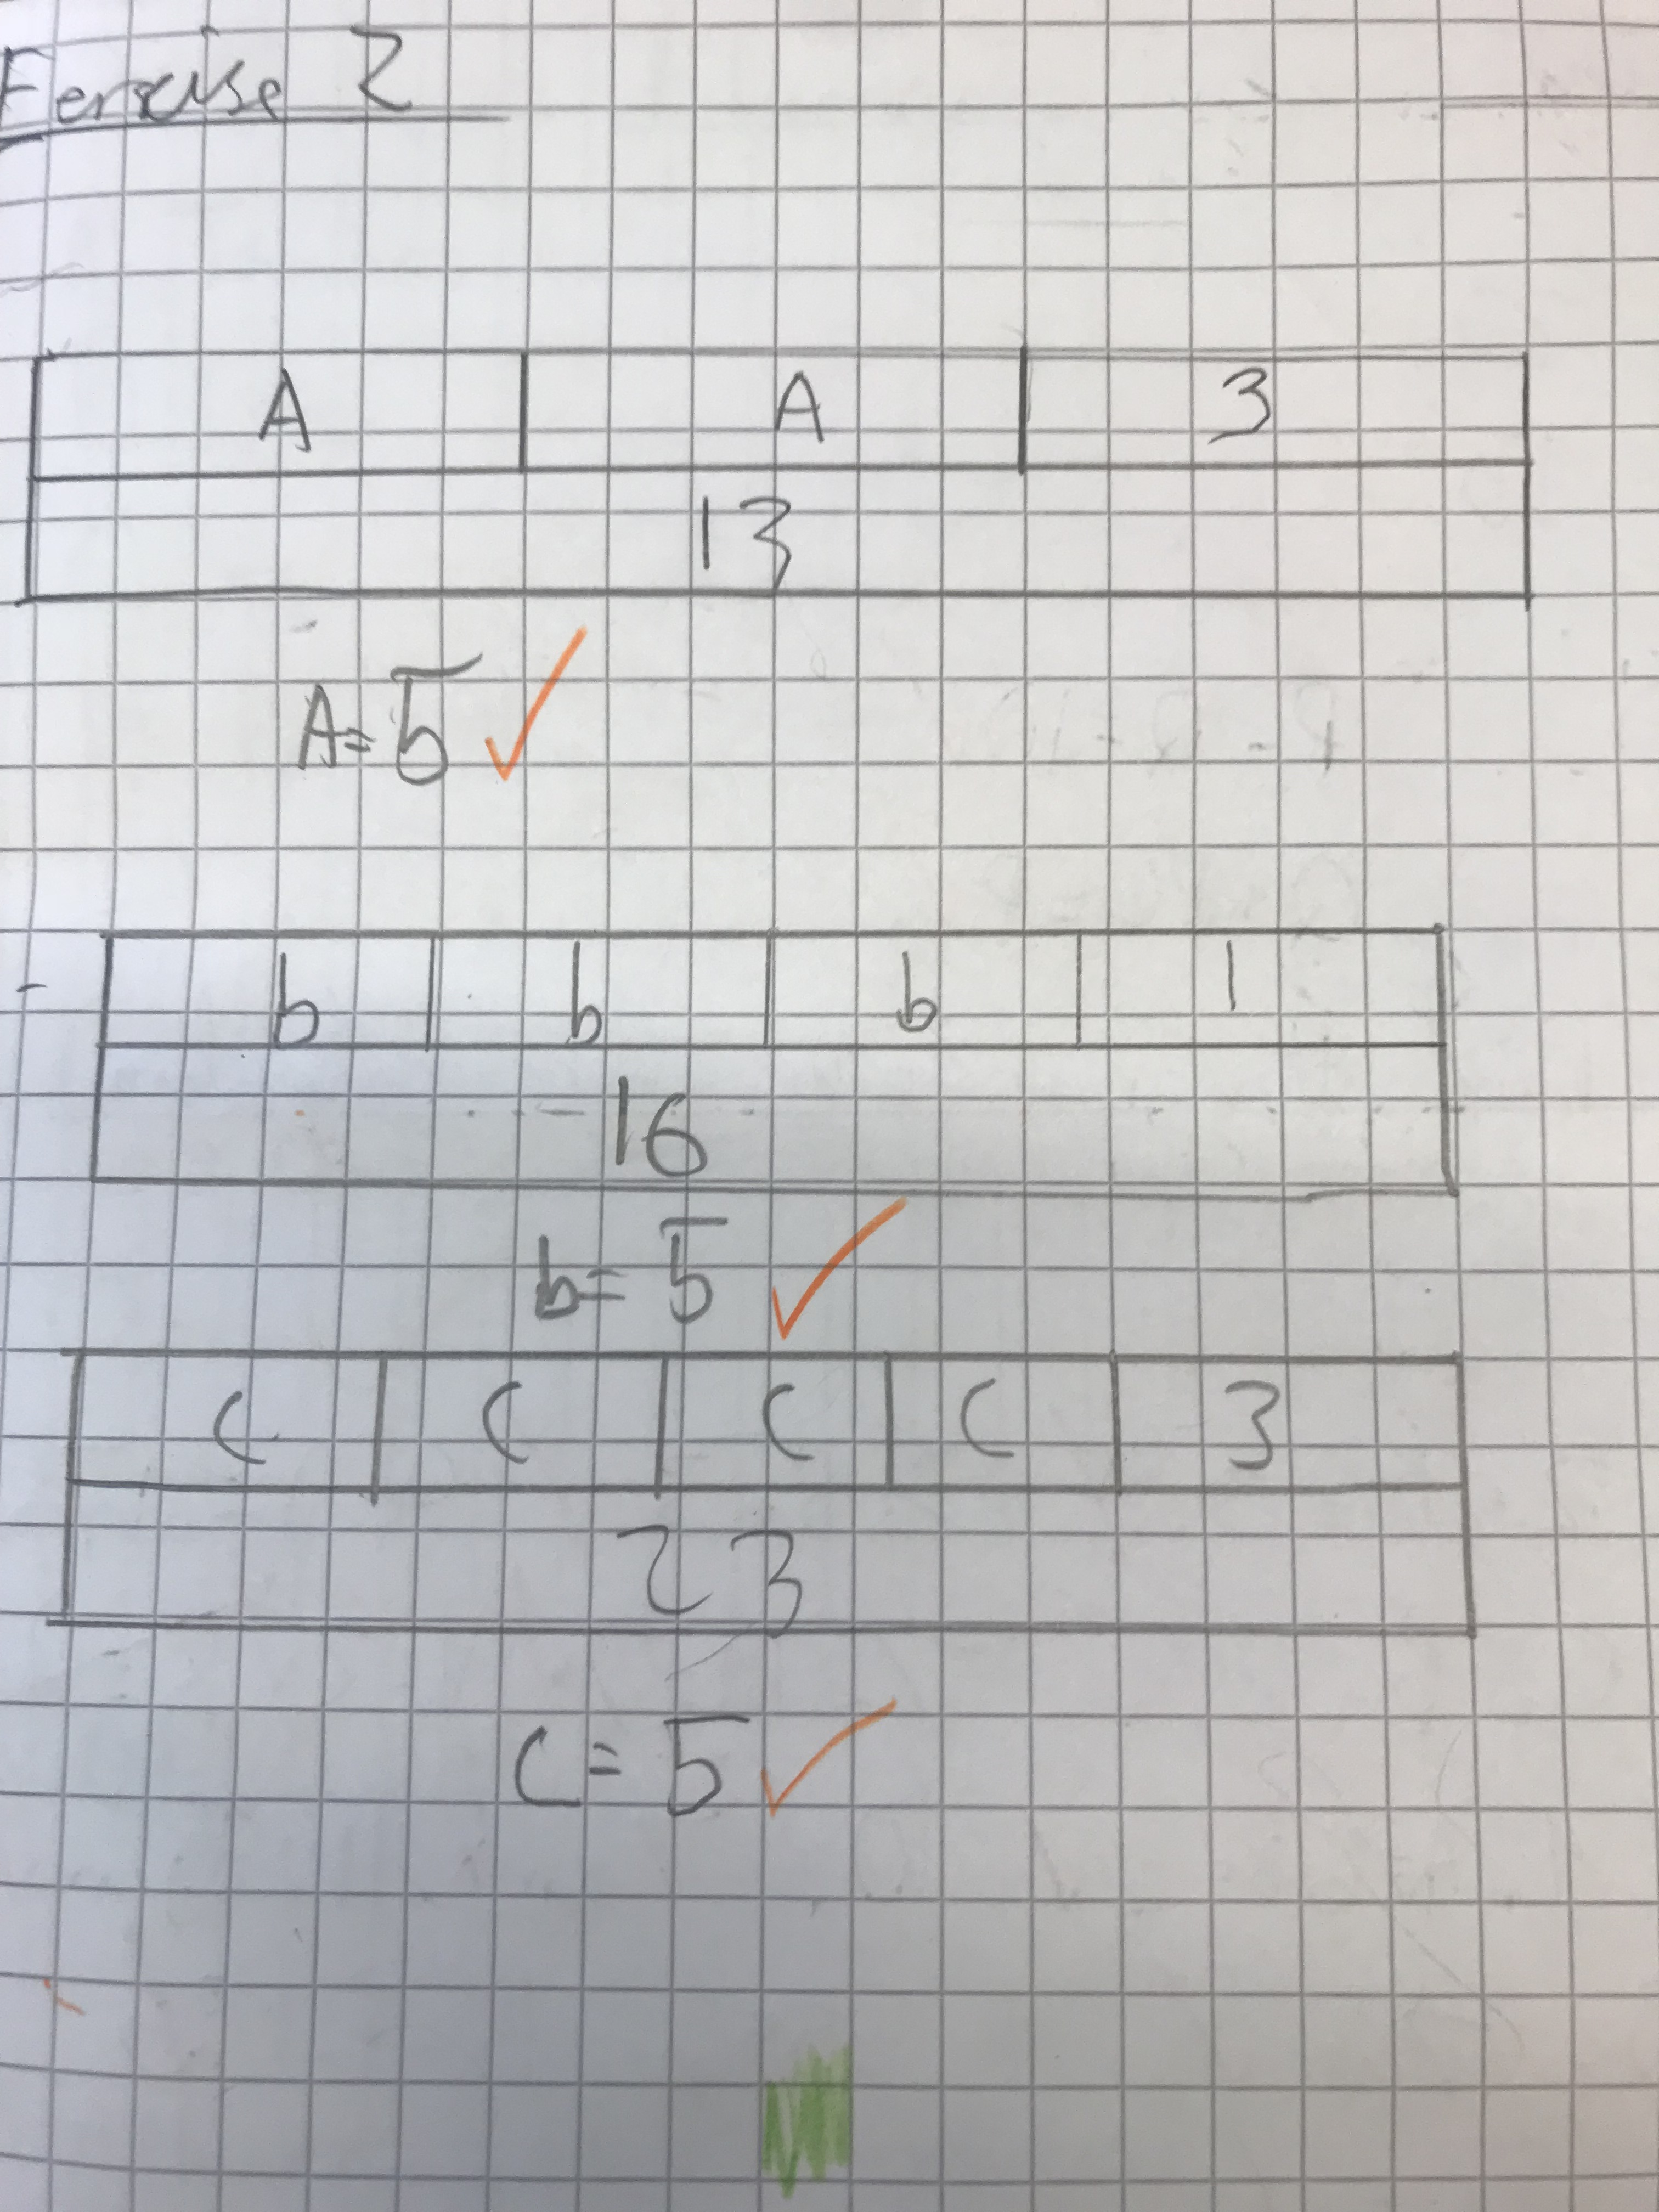 Exercise 2
A A 3
13
A= 5
b b b 1
16
b= 5
C C C C 3
23
C= 5